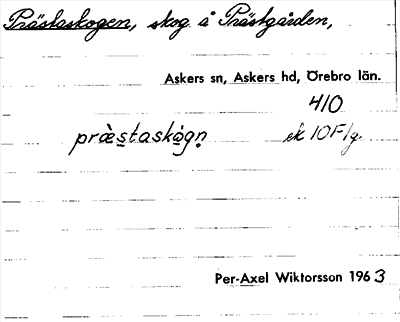 Prästaskogen, skog å Prästgården,
Askers sn, Askers hd, Örebro län.
410
præ̀staskògn̥ ek 10F1g
Per-Axel Wiktorsson 1963